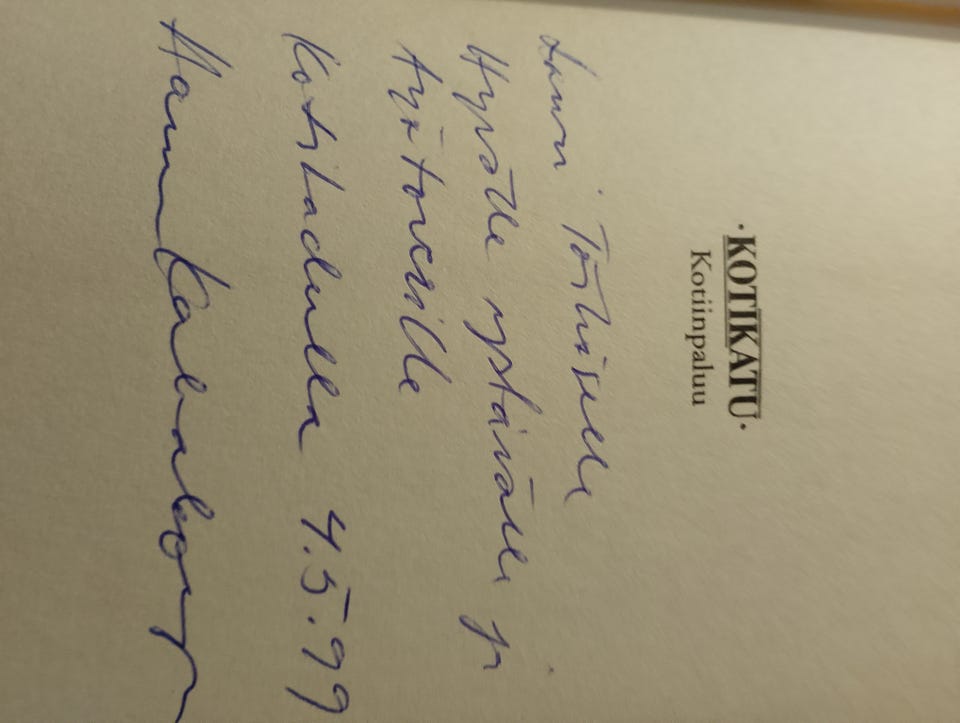 ·KOTIKATU·
Kotiinpaluu
Lauri Törhöselle
Hyvälle ystävälle ja
työtoverille
Kotikadulla 4.5.99
Hannu Kahakorpi